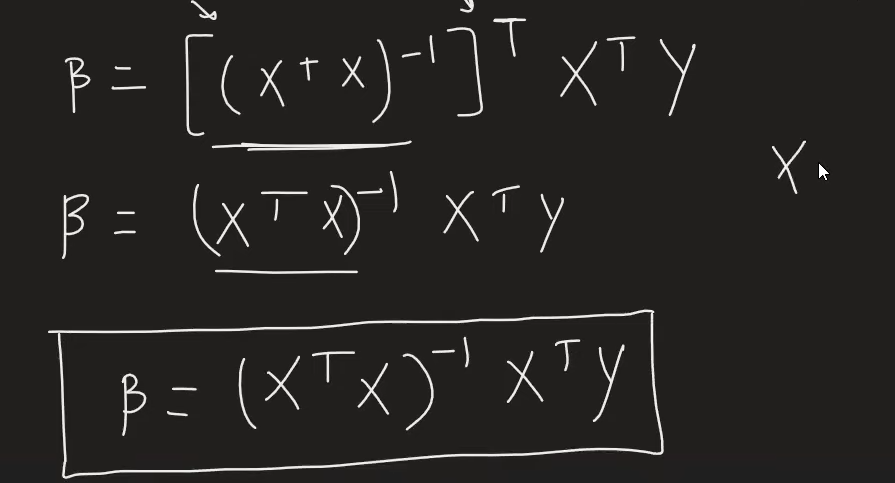 β = [(X^T X)^-1]^T X^T Y
X
β = (X^T X)^-1 X^T Y
β = (X^T X)^-1 X^T Y